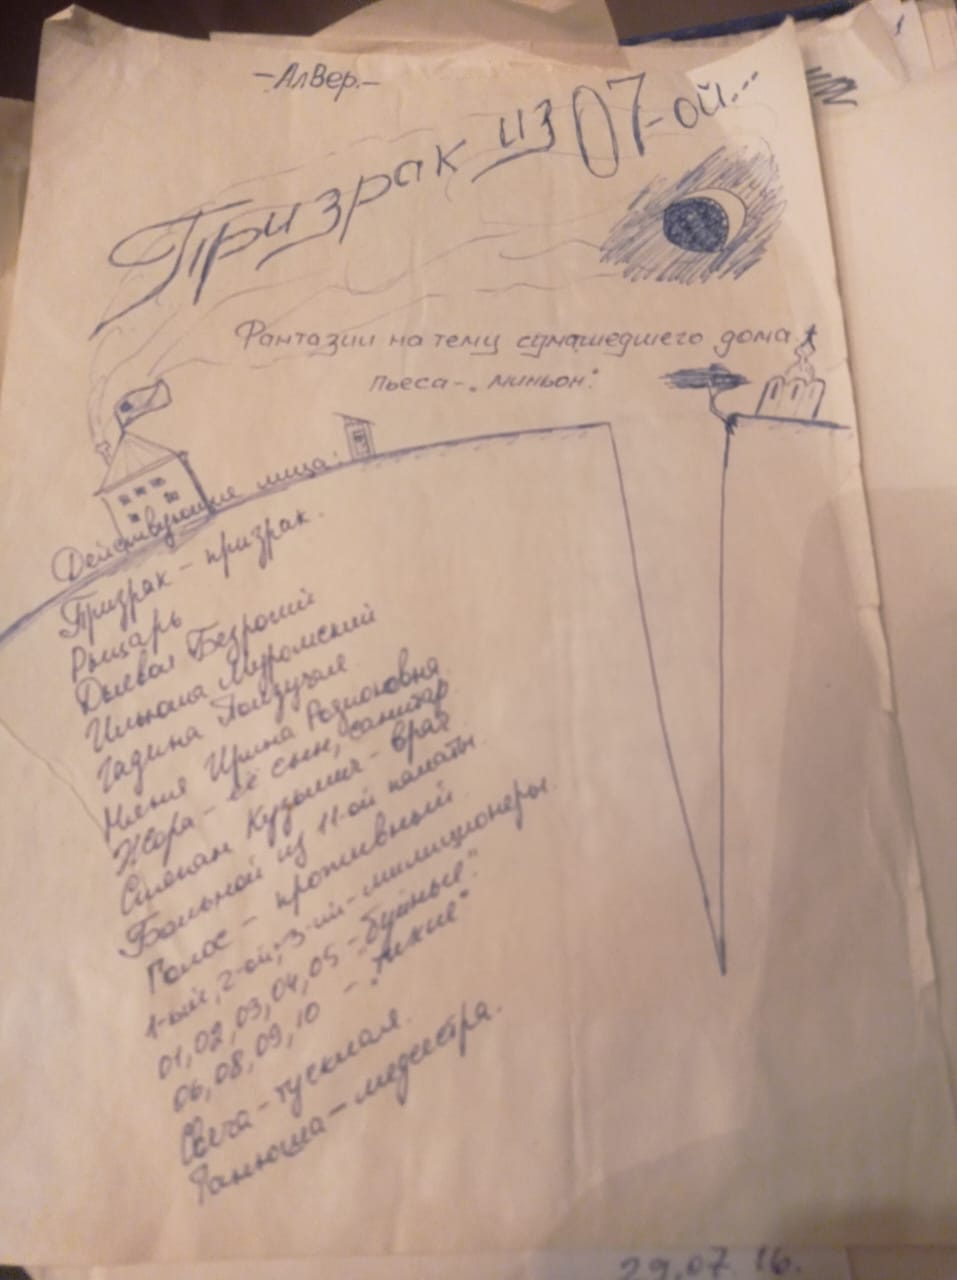 -АлВер.-
Призрак из 07-ой...
Фантазии на тему сумашедшего дома
пьеса-„миньон".
Действующие лица:
Призрак - призрак.
Рыцарь
Дылевал Безрогий
Ильюша Муромский
Гадина Ползучая
Няня Ирина Родионовна
Жора - её сын, санитар
Степан Кузьмич - врач
Больной из 11-ой палаты.
Голос - противный.
1-ый, 2-ой, 3-ий - милиционеры.
01, 02, 03, 04, 05 - „буйные".
06, 08, 09, 10 - „тихие"
Свеча - тусклая.
Танюша - медсестра.
29.07.16.